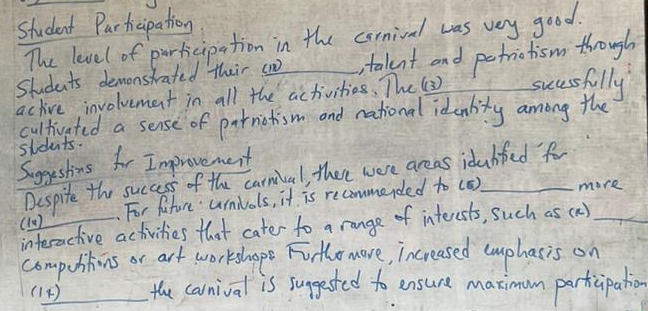 Student Participation
The level of participation in the carnival was very good.
Students demonstrated their (12) ________, talent and patriotism through
active involvement in all the activities. The (13) ________ sucessfully
cultivated a sense of patriotism and national identity among the
students.
Suggestions for Improvement
Despite the success of the carnival, there were areas identified for
(14) ________. For future carnivals, it is recommended to (15) ________ more
interactive activities that cater to a range of interests, such as ________
competitions or art workshops Furthermore, increased emphasis on
(17) ________ the carnival is suggested to ensure maximum participation